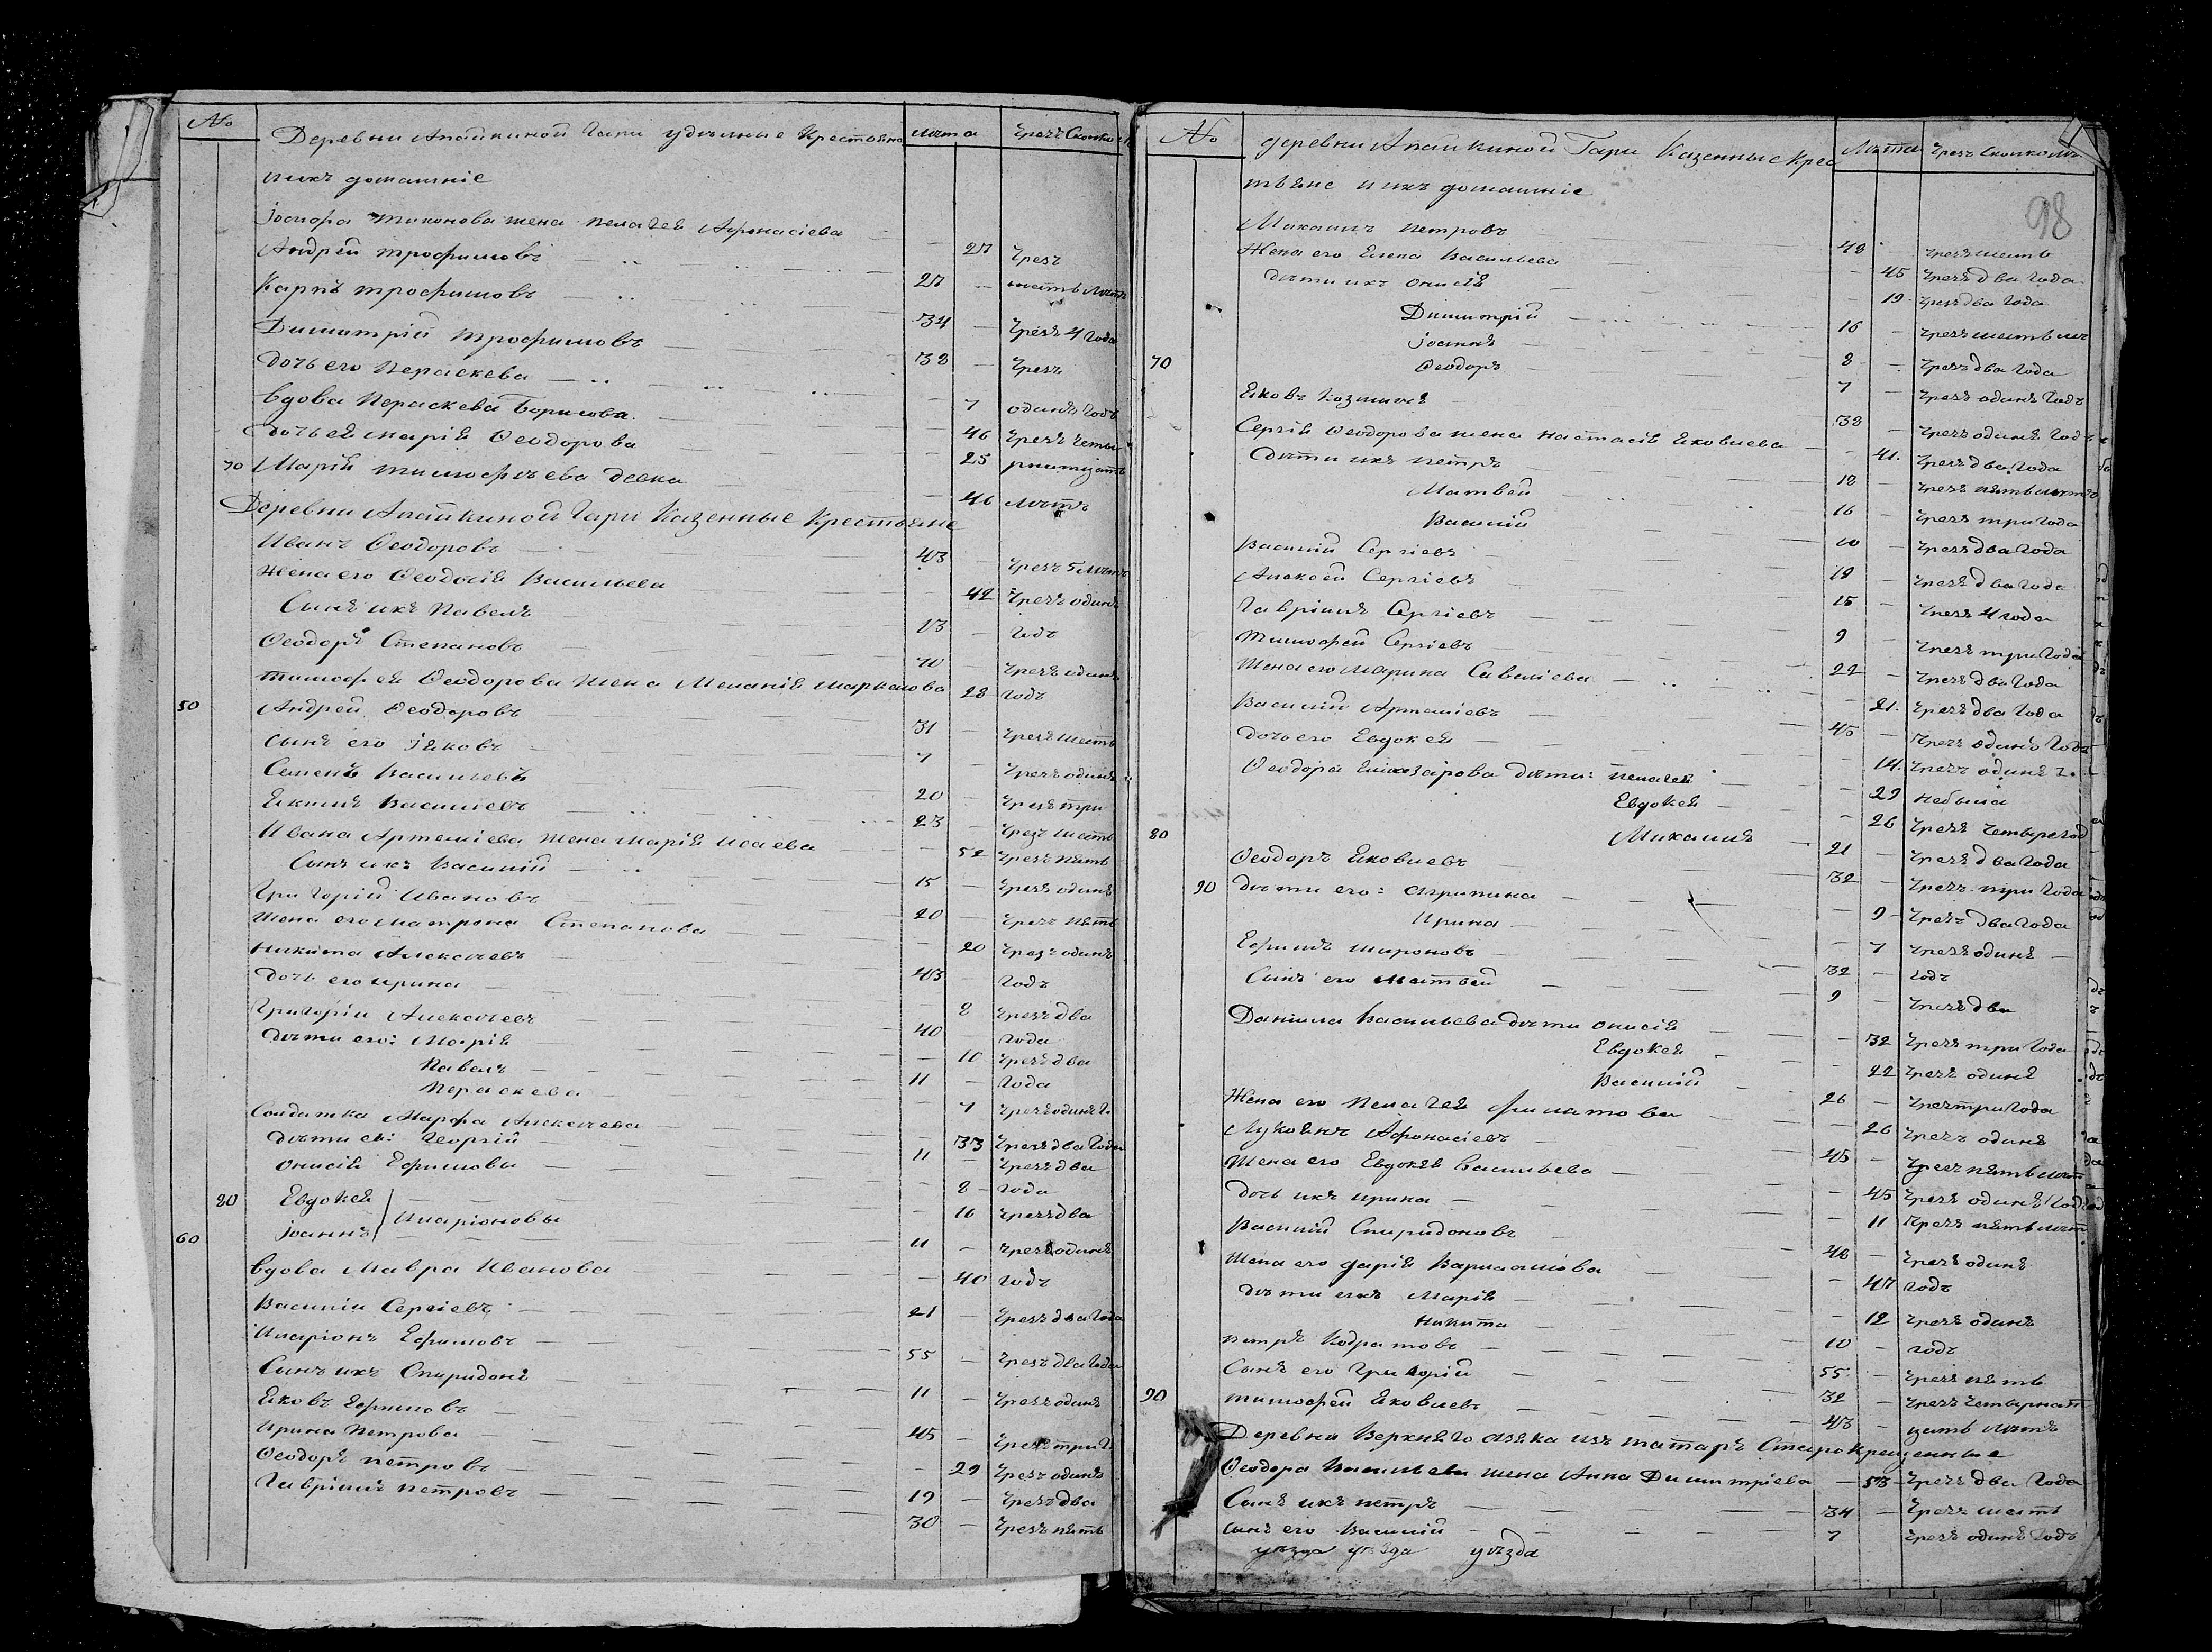 № Деревни Апайкиной Гари удѣльные Крестьяне лѣта Чрезъ Сколко
и ихъ домашніе
Іосифа Тихонова жена Пелагея Афонасіева — 27 Чрезъ
Андрей Трофимовъ 27 — шесть лѣтъ
Карпъ Трофимовъ 34 — Чрезъ 4 года
Димитрій Трофимовъ 38 — Чрезъ
Дочь его Пераскева — 7 одинъ годъ
вдова Пераскева Борисова — 46 Чрезъ четы
Дочь ея Марія Ѳеодорова — 25 рнатцать
70 Марія Тимофѣева девка — 46 лѣтъ
Деревни Апайкиной Гари Казенные Крестьяне
Иванъ Ѳеодоровъ 43 — Чрезъ 5 лѣтъ
Жена его Ѳеодосія Васильева — 42 Чрезъ одинъ
Сынъ ихъ Павелъ 13 — годъ
Ѳеодоръ Степановъ 70 — Чрезъ одинъ
Тимофея Ѳеодорова жена Меланія Маркелова 28 годъ
50 Андрей Ѳеодоровъ 31 — Чрезъ шесть
Сынъ его Іяковъ 7 — Чрезъ одинъ
Семенъ Васильевъ 20 — Чрезъ три
Екимъ Василіевъ 23 — Чрезъ шесть
Ивана Артеміева жена Марія Исаева — 52 Чрезъ пять
Сынъ ихъ Василій 15 — Чрезъ одинъ
Григорій Ивановъ 20 — Чрезъ пять
Жена его Матрона Степанова — 20 Чрезъ одинъ
Никита Алексѣевъ 43 — годъ
Дочь его Ирина — 8 Чрезъ два
Григорій Алексѣевъ 40 года
Дѣти его: Марія — 10 Чрезъ два
Павелъ 11 — года
Пераскева — 7 Чрезъ одинъ г.
Солдатка Марфа Алексѣева — 33 Чрезъ два года
Дѣти ея: Георгій 11 — Чрезъ два
Онисія Ефимова — 8 года
80 Евдокея — 16 Чрезъ два
Иларіоновы
60 Іоаннъ 11 — Чрезъ одинъ
вдова Мавра Иванова — 40 годъ
Василій Сергіевъ 21 — Чрезъ два года
Иларіонъ Ефимовъ 55 — Чрезъ два года
Сынъ ихъ Спиридонъ 11 — Чрезъ одинъ
Яковъ Ефимовъ 45 — Чрезъ три г.
Ирина Петрова — 29 Чрезъ одинъ
Ѳеодоръ Петровъ 19 — Чрезъ два
Гавріилъ Петровъ 30 — Чрезъ пять
№ деревни Апайкиной Гари Казенные Крес Лѣта Чрезъ Сколко лѣ
тьяне и ихъ домашніе
98
Михаилъ Петровъ 48 — Чрезъ шесть
Жена его Елена Васильева — 45 Чрезъ два года
Дѣти ихъ Онисія 19 Чрезъ два года
Димитрій 16 — Чрезъ шесть лѣ
Іоаннъ 8 — Чрезъ два года
70 Ѳеодоръ 7 — Чрезъ одинъ годъ
Яковъ Козминъ 38 — Чрезъ одинъ годъ
Сергія Ѳеодорова жена Настасія Яковлева — 41. Чрезъ два года
Дѣти ихъ Петръ 18 — Чрезъ пять лѣтъ
Матвей 16 — Чрезъ три года
Василій 10 — Чрезъ два года
Василій Сергіевъ 18 — Чрезъ два года
Алексей Сергіевъ 15 — Чрезъ 4 года
Гавріилъ Сергіевъ 9 — Чрезъ три года
Тимофей Сергіевъ 22 — Чрезъ два года
Жена его Марина Савеліева — 21. Чрезъ два года
Василій Артеміевъ 45 — Чрезъ одинъ годъ
Дочь его Евдокея — 14. Чрезъ одинъ г.
Ѳеодора Елиазарова дѣти: Пелагея — 29 небыла
Евдокея — 26 Чрезъ четыре год
80 Михаилъ 21 — Чрезъ два года
Ѳеодоръ Яковлевъ 32 — Чрезъ три года
90 Дѣти его: Агрипина — 9 Чрезъ два года
Ирина — 7 Чрезъ одинъ
Ефимъ Мироновъ 32 — годъ
Сынъ его Матвей 9 — Чрезъ два
Даніила Васильева дѣти Онисія — 32 Чрезъ три года
Евдокея — 22 Чрезъ одинъ
Василій 26 — Чрезъ три года
Жена его Пелагея Филатова — 26 Чрезъ одинъ
Лукоянъ Афонасіевъ 45 — Чрезъ пять лѣт
Жена его Евдокея Васильева — 45 Чрезъ одинъ год
Дочь ихъ Ирина — 11 Чрезъ пять лѣт
Василій Спиридоновъ 48 — Чрезъ одинъ
Жена его Дарія Варлаамова — 47 годъ
Дѣти ихъ Марія — 12 Чрезъ одинъ
Никита 10 — годъ
Петръ Кодратовъ 55 — Чрезъ пять
Сынъ его Григорій 32 — Чрезъ четырнат
90 Тимофей Яковлевъ 43 — цать лѣтъ
Деревни Верхняго Азяка изъ татаръ Старокрещенные
Ѳеодора Васильева жена Анна Димитріева — 53 Чрезъ два года
Сынъ ихъ Петръ 34 — Чрезъ шесть
Сынъ его Василій 7 Чрезъ одинъ годъ
уѣзда уѣзда уѣзда